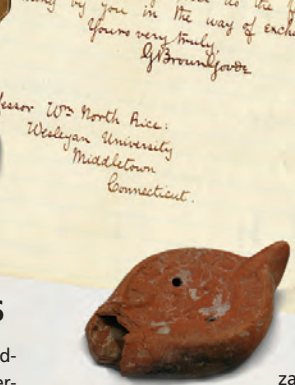 by you in the way of exch
Yours very truly,
G Brown Goode
fessor Wm North Rice:
Wesleyan University
Middletown
Connecticut.
s
d-
er-
za